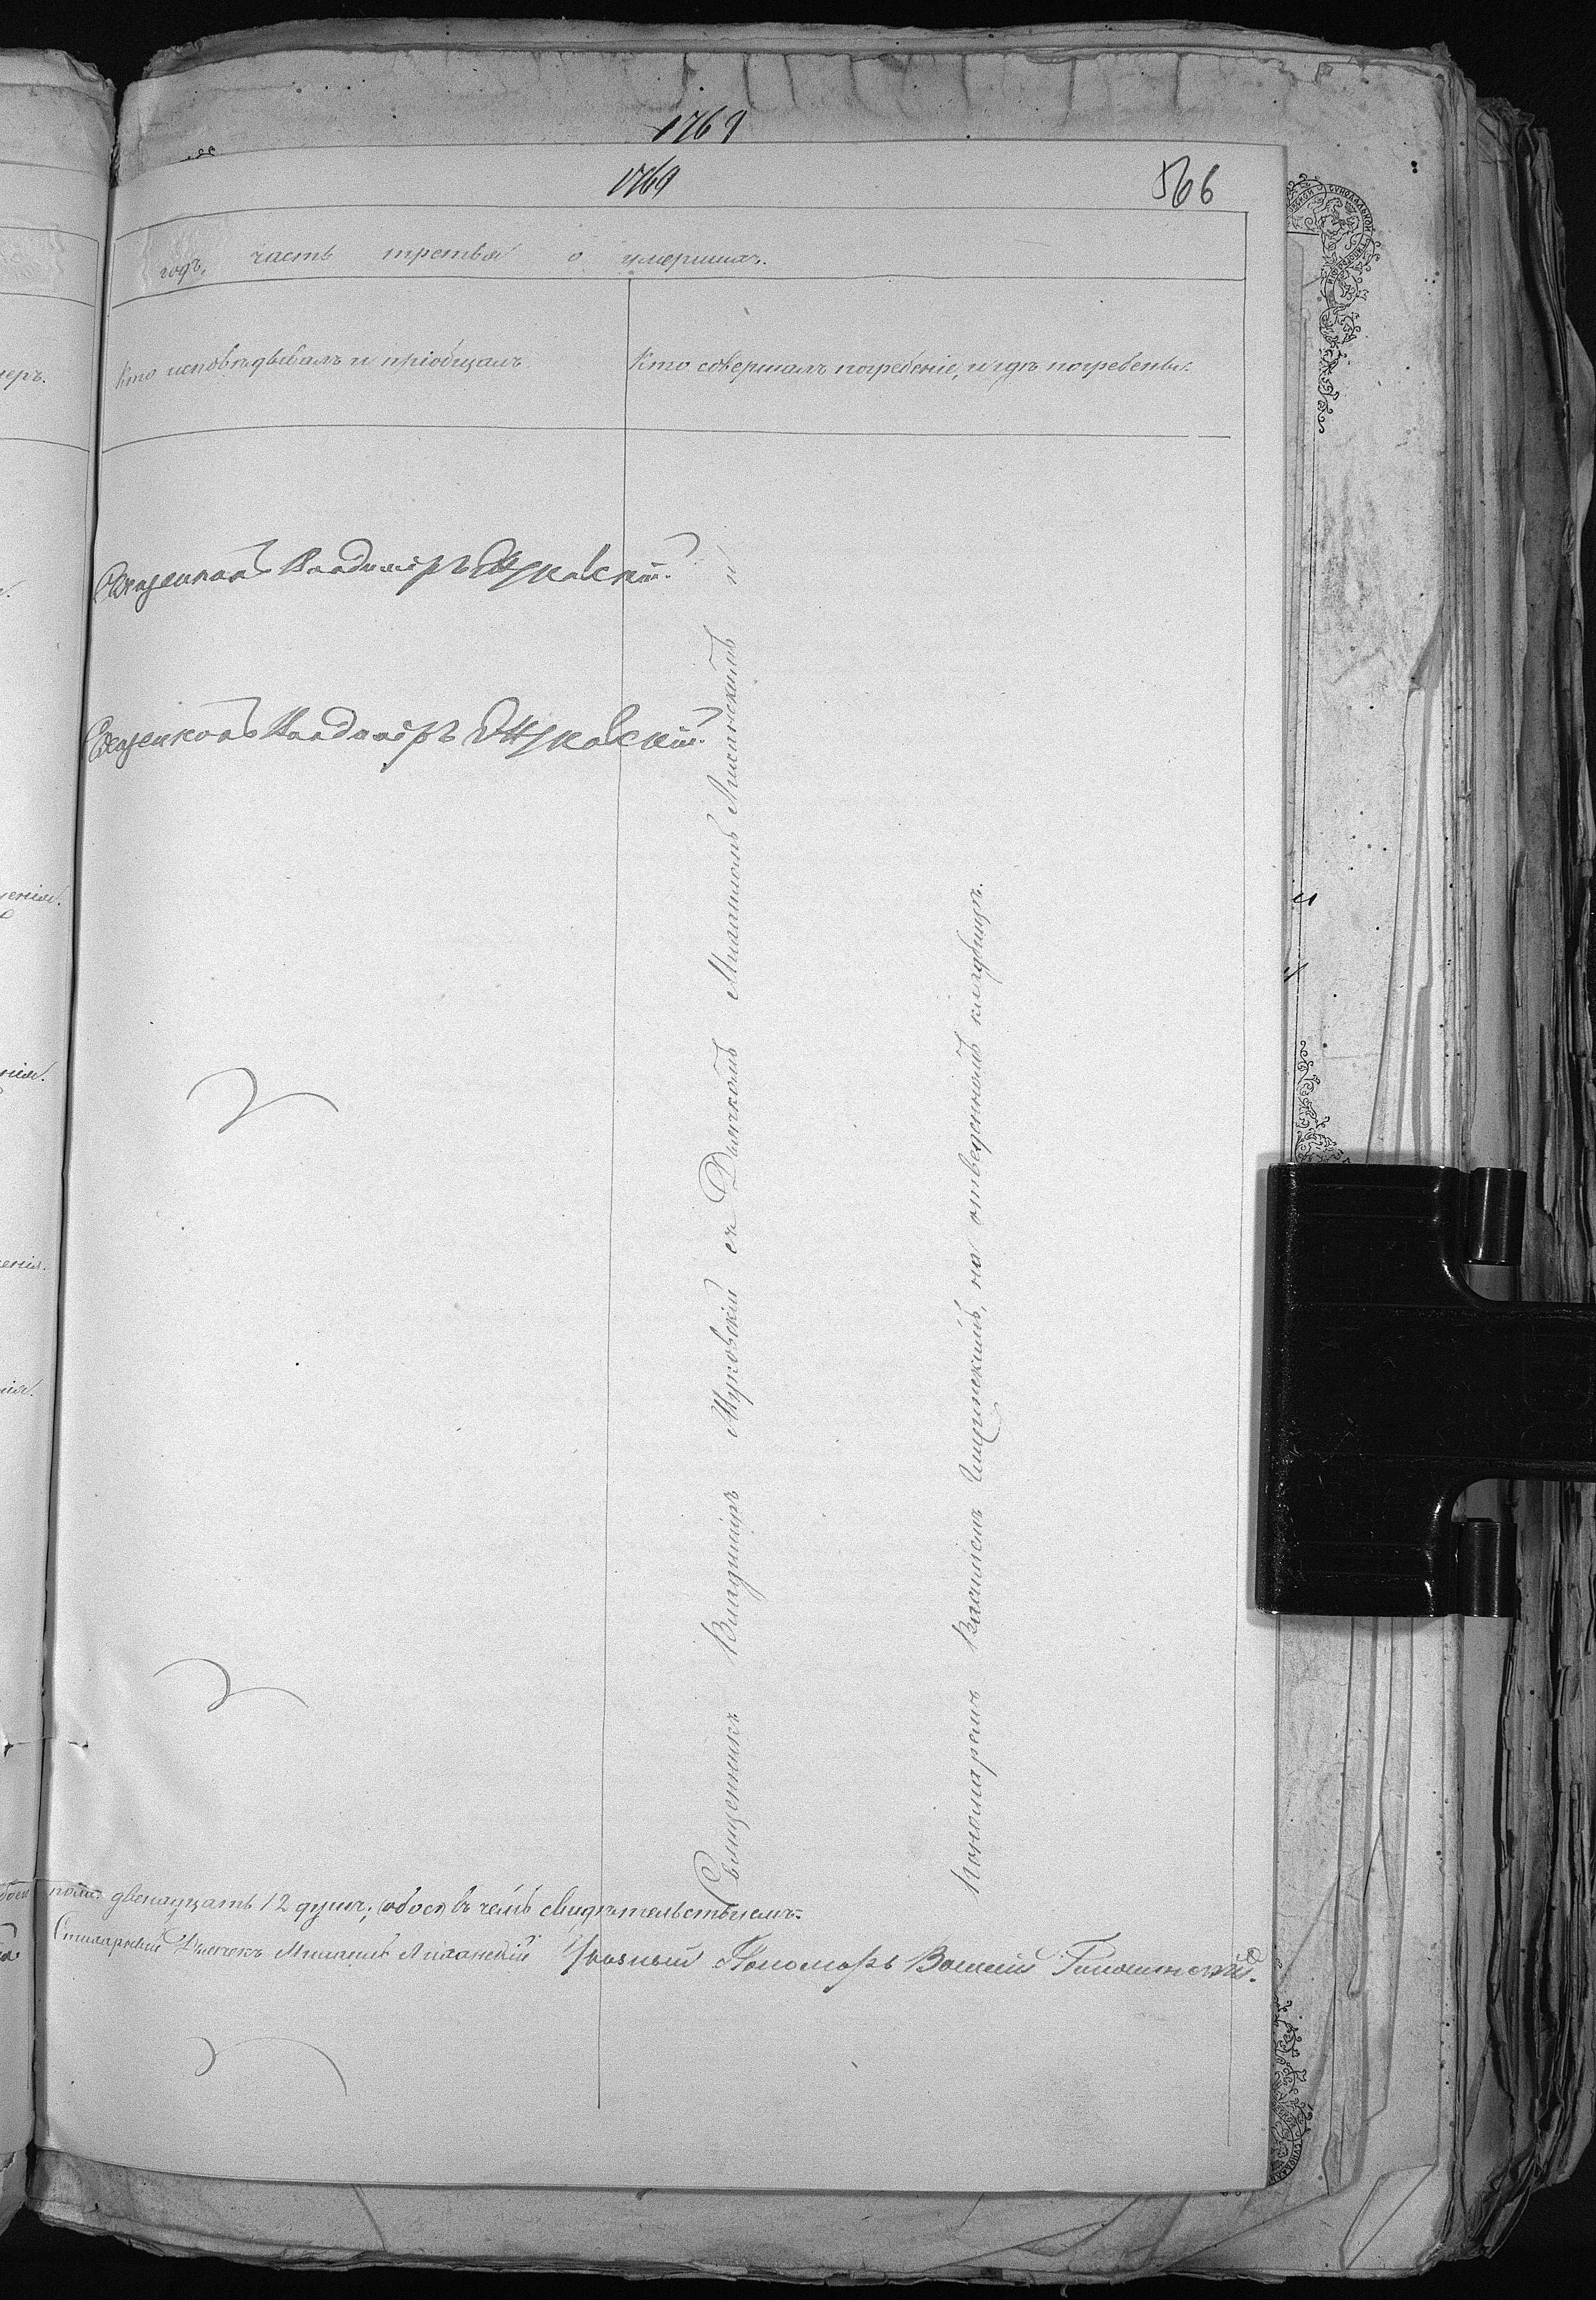 1769
1769
566
годъ, часть третья о умершихъ.
Кто исповѣдывалъ и пріобщалъ
Кто совершалъ погребеніе, и гдѣ погребены.
Священникъ Владиміръ Жуковскій.
Священникъ Владиміръ Жуковскій.
Священникъ Владиміръ Жуковскій съ Дьячкомъ Михаиломъ Лисанскимъ и
Пономаремъ Василіемъ на отведенномъ кладбищѣ.
двенадцать 12 душъ; въ чемъ свидѣтельствуемъ:
Дьячекъ Михаилъ Лисанскій Указный Пономарь Василій